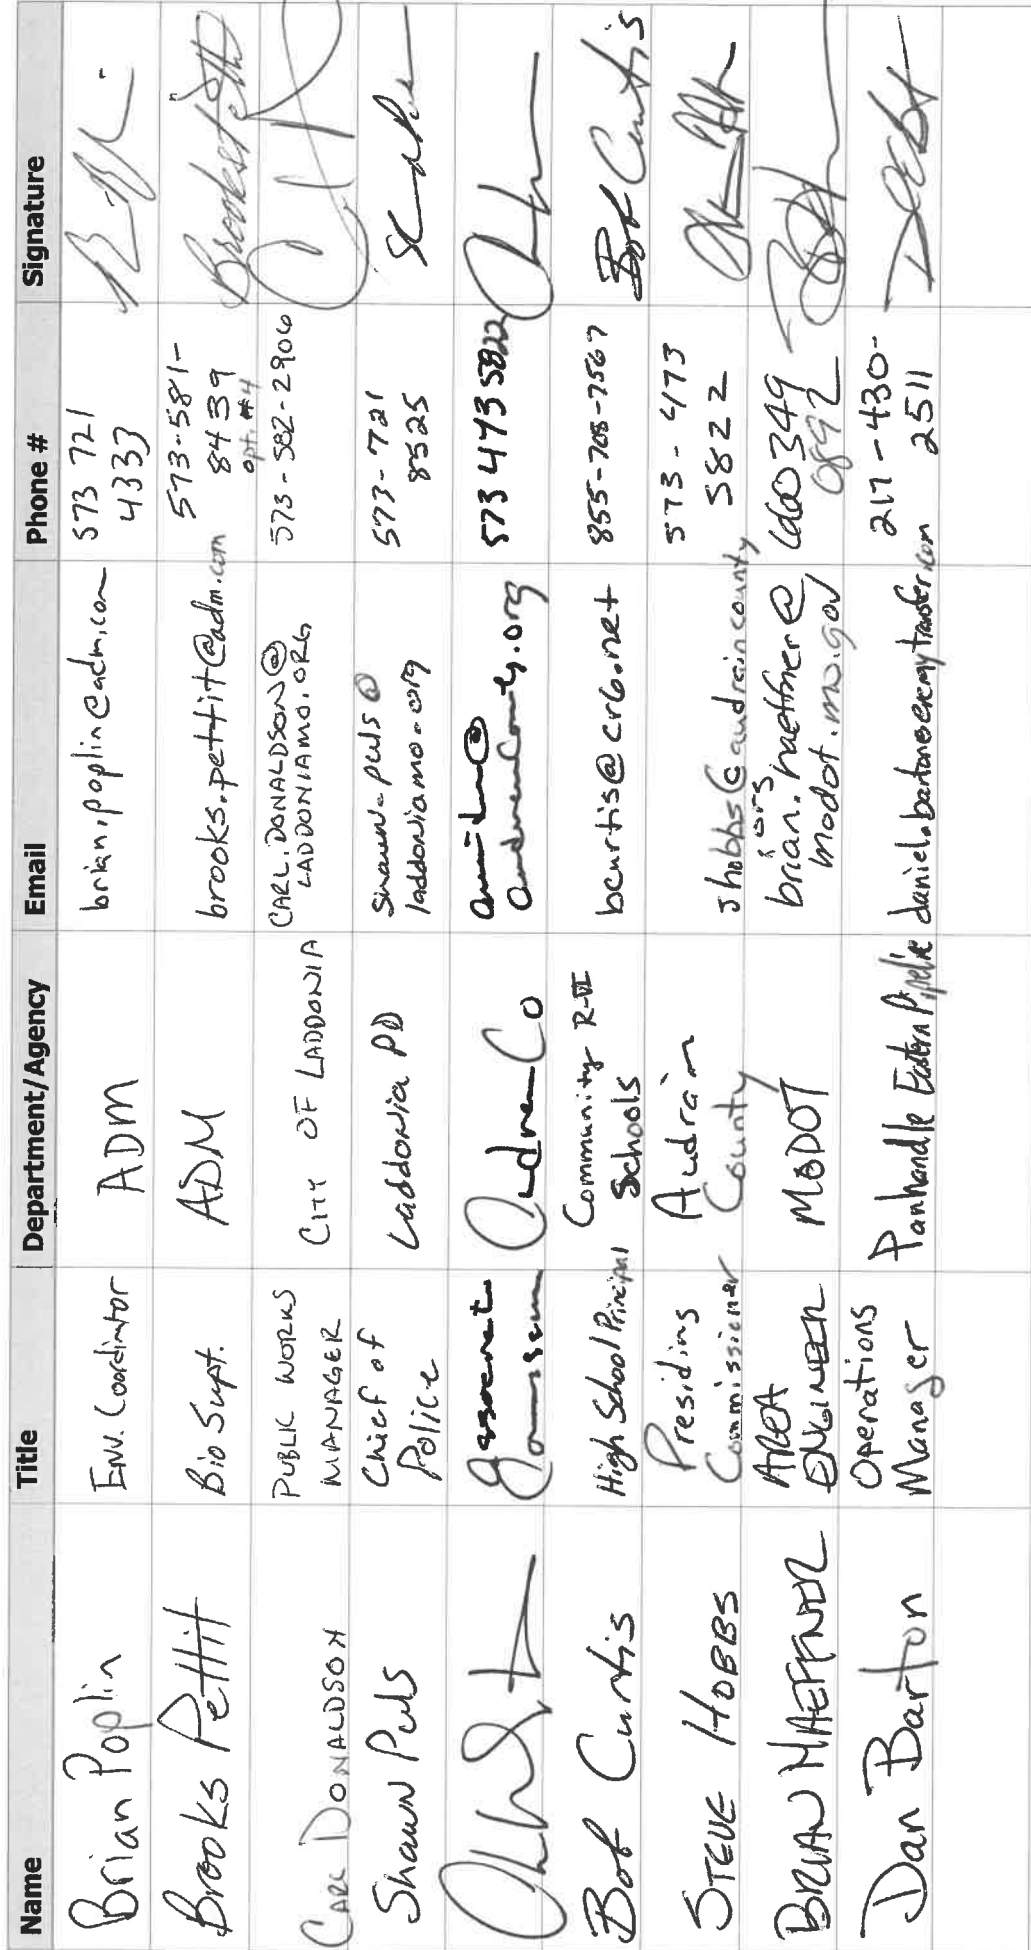 Name Title Department/Agency Email Phone # Signature
Brian Poplin Env. Coordinator ADM brian.poplin@adm.com 573 721
4333
Brooks Pettit Bio Supt. ADM brooks.pettit@adm.com 573-581-
8439
opt. #4
CARL DONALDSON PUBLIC WORKS
MANAGER CITY OF LADDONIA CARL.DONALDSON@
LADDONIAMO.ORG 573-582-2906
Shawn Puls Chief of
Police Laddonia PD Shawn.puls@
laddoniamo.org 573-721
8525
Co 573 473 5822
Bob Curtis High School Principal Community R-VI
Schools bcurtis@cr6.net 855-708-7567 Bob Curtis
STEVE HOBBS Presiding
Commissioner Audrain
County shobbs@audraincounty
.org 573-473
5822
BRIAN HAEFFNER AREA
ENGINEER MODOT brian.haeffner@
modot.mo.gov 660 349
0892
Dan Barton Operations
Manager Panhandle Eastern Pipeline daniel.barton@energytransfer.com 217-430-
2511